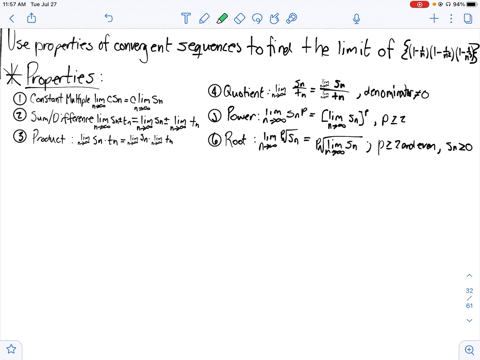 11:57 AM Tue Jul 27
94%
Use properties of convergent sequences to find the limit of {(1-1/n)(1-1/n²)(1-1/n³)}
* Properties:
① Constant Multiple lim n→∞ CSn = C lim n→∞ Sn
② Sum/Difference lim n→∞ Sn ± tn = lim n→∞ Sn ± lim n→∞ tn
③ Product: lim n→∞ Sn · tn = lim n→∞ Sn · lim n→∞ tn
④ Quotient: lim n→∞ Sn/tn = lim n→∞ Sn / lim n→∞ tn , denominator ≠ 0
⑤ Power: lim n→∞ Sn^p = [lim n→∞ Sn]^p , p ≥ 2
⑥ Root: lim n→∞ p√Sn = p√lim n→∞ Sn ; p ≥ 2 and even, Sn ≥ 0
32
/
61